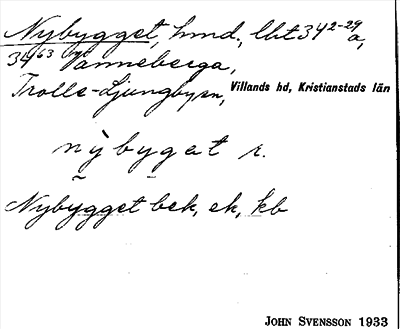 Nybygget, hmd., lht 34²⁻²⁹ a,
34⁶³ Vanneberga,
Trolle-Ljungbysn, Villands hd, Kristianstads län
nỳbygat r.
Nybygget bek, ek, kb
JOHN SVENSSON 1933